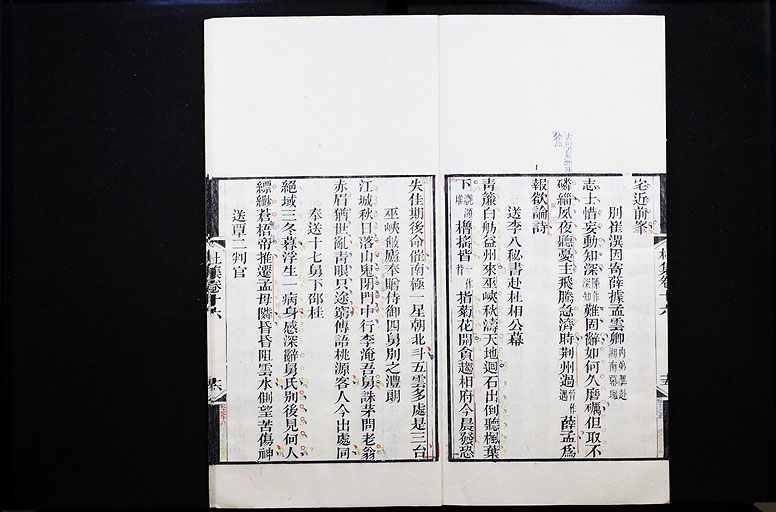 宅近前峯
別崔潩因寄薛據孟雲卿 內弟潩赴湖南幕職
志士惜妄動知深難固辭如何久磨礪但取不
磷緇夙夜聽憂主飛騰急濟時荊州過薛孟為
報欲論詩
送李八秘書赴杜相公幕
青簾白舫益州來巫峽秋濤天地迴石出倒聽楓葉
下櫓搖背指菊花開貪趨相府今晨發恐
失佳期後命催南極一星朝北斗五雲多處是三台
巫峽敝廬奉贈侍御四舅別之澧朗
江城秋日落山鬼閉門中行李淹吾舅誅茅問老翁
赤眉猶世亂青眼只途窮傳語桃源客人今出處同
奉送十七舅下邵桂
絕域三冬暮浮生一病身感深辭舅氏別後見何人
縹緲蒼梧帝推遷孟母隣昏昏阻雲水側望苦傷神
送覃二判官
杜集卷十六